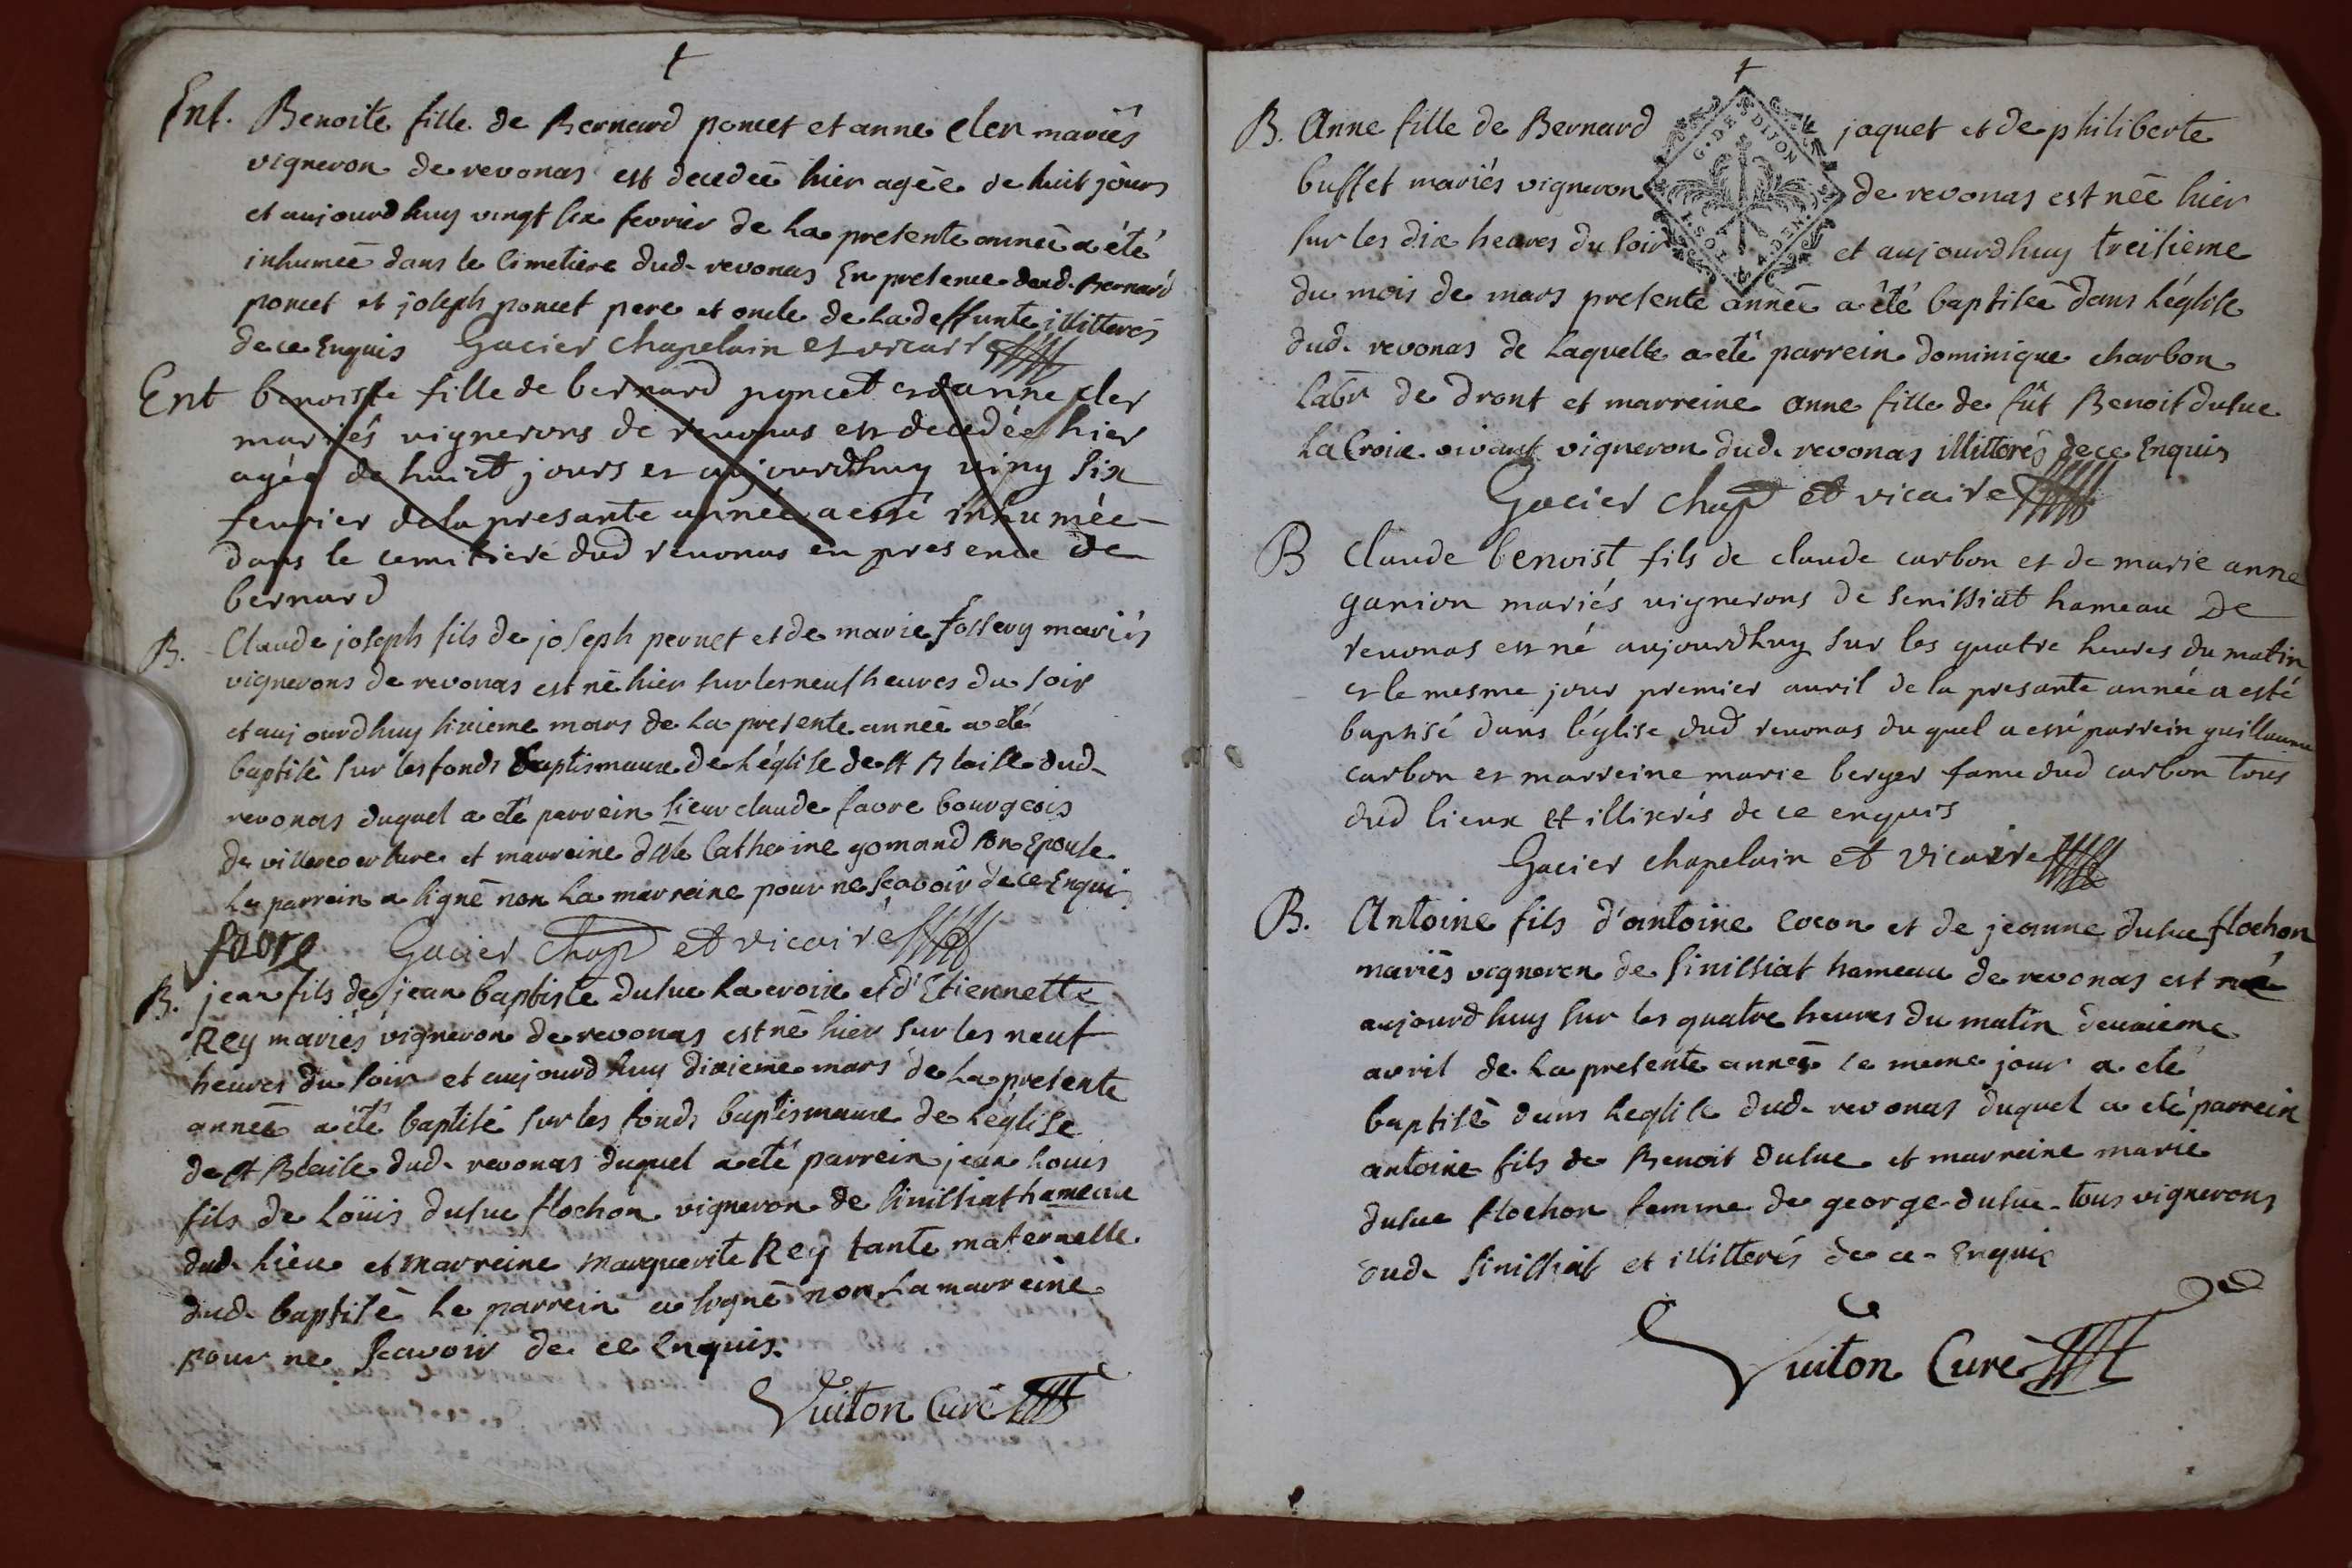 Ent. Benoite fille de Bernard poncet et anne cler mariés
vigneron de revonas est decedeé hier agéé de huit jours
et aujourdhuy vingt six fevrier de la presente année a été
inhumeé dans le Cimetiere dud. revonas En presence dud. Bernard
poncet et joseph poncet pere et oncle de la deffunte illitterés
de ce Enquis Gacier chapelain et vicaire
Ent benoiste fille de bernard poncet et danne cler
mariés vignerons de revonas est decedée hier
agée de huict jours et aujourdhuy ving six
feurier de la presante année a esté inhumée
dans le cemitiere dud revonas en presence de
bernard
B. Claude joseph fils de joseph pernet et de marie fossery mariés
vignerons de revonas est né hier sur les neuf heures du soir
et aujourdhuy sixieme mars de la presente anneé a eté
baptisé sur les fonds Baptismaux de l'église de st Blaise dud.
revonas duquel a eté parrein sieur claude favre bourgeois
de et marreine dlle Catherine gomand son Epouse
le parrein a signé non la marreine pour ne scavoir de ce Enqui
favre Gacier Chap et vicaire
B. jean fils de jean baptiste dusuc la croix et d'Etiennette
Rey mariés vigneron de revonas est né hier sur les neuf
heures du soir et aujourdhuy dixieme mars de la presente
anneé a été baptisé sur les fonds baptismaux de l'église
de st Blaise dud. revonas duquel a eté parrein jean louis
fils de Loüis dusuc flochon vigneron de sinissiat hameau
dud. lieu et marreine marguerite Rey tante maternelle
dud. baptisé le parrein a signé non la marreine
pour ne scavoir de ce Enquis.
Vuiton Curé
B. Anne fille de Bernard jaquet et de philiberte
buffet mariés vigneron de revonas est néé hier
G. DES DIJON
sur les dix heures du soir et aujourdhuy treisieme
du mois de mars presente anneé a été baptiseé dans l'église
dud. revonas de laquelle a eté parrein dominique charbon
labr de dront et marreine anne fille de fût Benoit dusuc
la Croix vivant vigneron dud. revonas illitterés de ce Enquis
Gacier chap et vicaire
B Claude benoist fils de claude carbon et de marie anne
ganion mariés vignerons de senissiat hameau de
revonas est né aujourdhuy sur les quatre heures du matin
et le mesme jour premier auril de la presante année a esté
baptisé dans l'église dud revonas du quel a esté parrein guillaume
carbon et marreine marie berger fame dud carbon tous
dud lieux et illiterés de ce enquis
Gacier chapelain et vicaire
B. Antoine fils d'antoine cocon et de jeanne dusuc flochon
mariés vigneron de sinissiat hameau de revonas est né
aujourdhuy sur les quatre heures du matin deuxieme
avril de la presente anneé le meme jour a eté
baptisé dans l'eglise dud. revonas duquel a eté parrein
antoine fils de Benoit dusuc et marreine marie
dusuc flochon femme de george dusuc tous vignerons
dud. sinissiat et illitterés de ce Enquis
Vuiton Curé